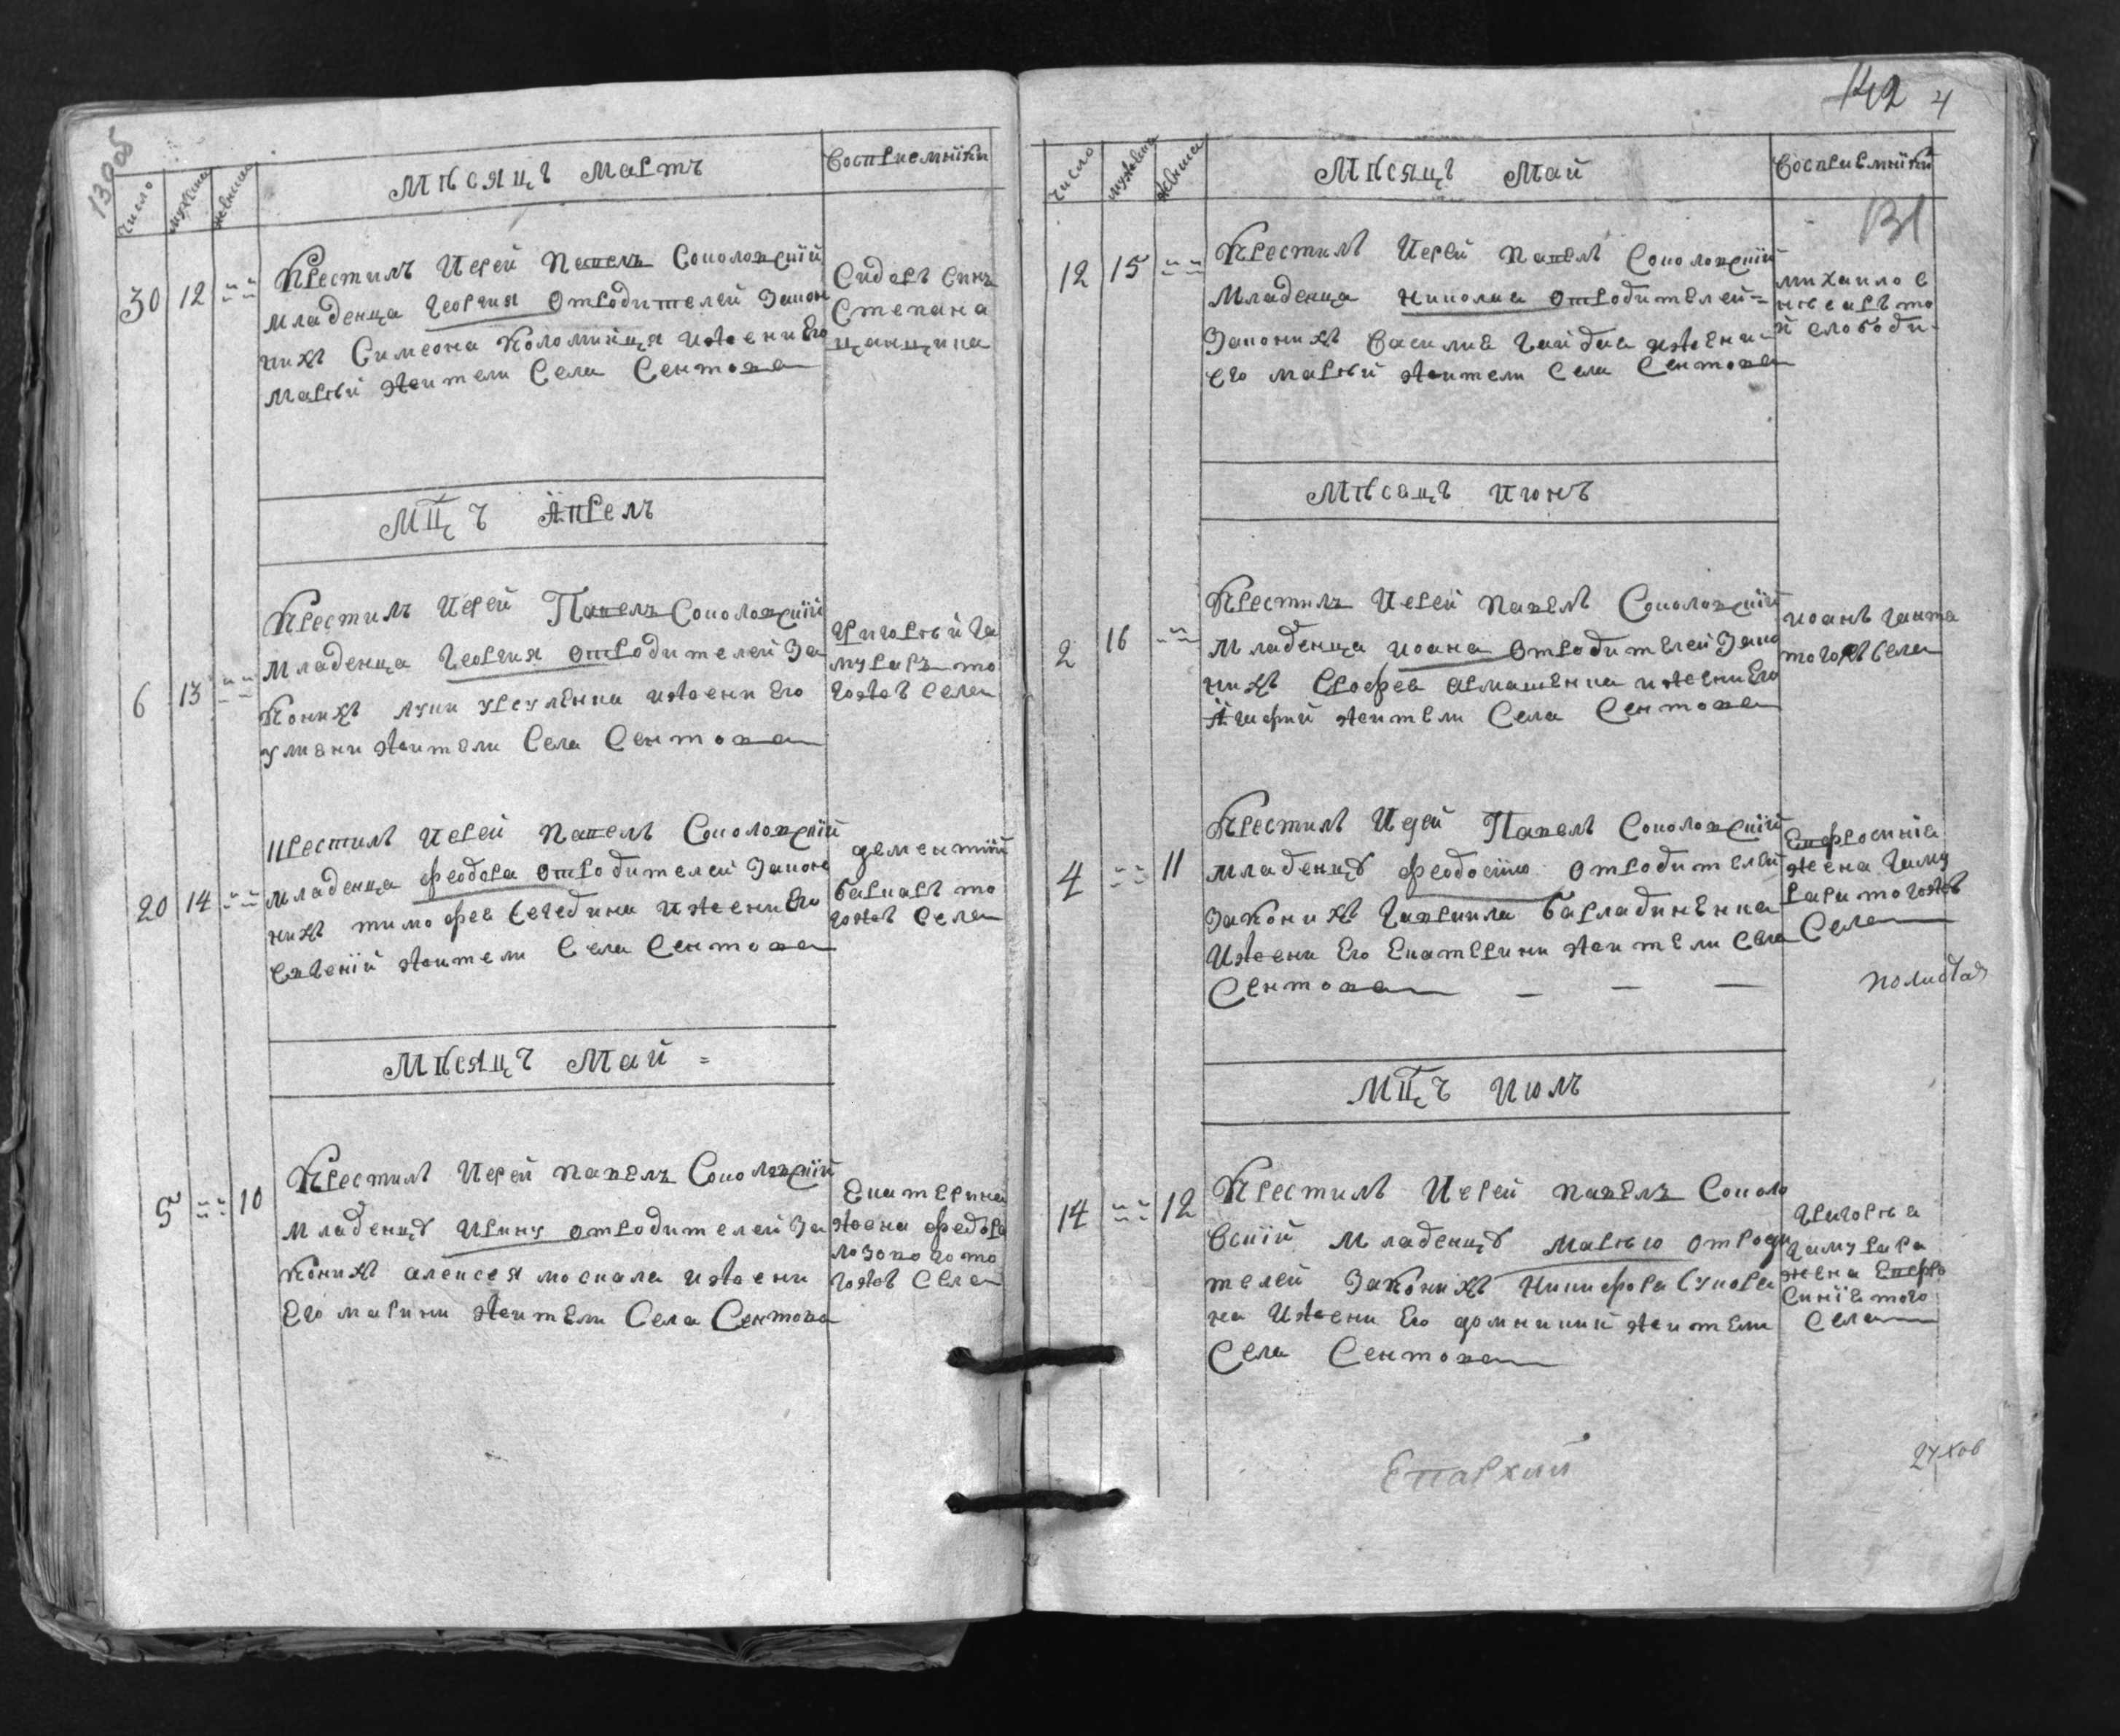 130об
число
мужеска
женска
Мѣсяцъ Мартъ
Восприемнїки
30 12
Крестилъ Иерей Павелъ Соколовскїй
младенца Георгия отъродителей закон
нихъ Симеона Коломийця ижени Его
Марѣй жители Села Сентова
Сидоръ синъ
Степана
мцъ Апрелъ
6 13
Крестилъ Иерей Павелъ Соколовскїй
младенца Георгия отъродителей За
конихъ луки ижени Его
улияни жители Села Сентова
Григорѣй Га
мураръ то
гожъ села
20 14
Крестилъ Иерей Павелъ Соколовскїй
младенца феодора отъродителей Закон
нихъ тимофея Середини ижени Его
Евгенїй жители Села Сентова
дементїй
то
гожъ села
Мѣсяцъ Май
5 10
Крестилъ Иерей павелъ Соколовскїй
младенцѣ Ирину отъродителей За
конихъ алексея москаля ижени
Его марини жители Села Сентова
Екатерина
жена федора
лозового то
гожъ села
142 4
131
число
мужеска
женска
Мѣсяцъ Май
Восприемнїки
12 15
Крестилъ Иерей павелъ Соколовскїй
Младенца николая отъродителей
Законихъ Василия Гайдая ижени
его Марѣй жители Села Сентова
михаило с
то
й слободи
Мѣсяцъ июнъ
2 16
Крестилъ Иерей павелъ Соколовскїй
младенца иоана отъродителей Зако
нихъ Ерофея армашенка ижени Его
жители Села Сентова
иоанъ
тогожъ села
4 11
Крестилъ Иерей Павелъ Соколовскїй
младенцѣ феодосию отъродителей
Законихъ Гавриила Барладиненка
Ижени Его Екатерини жители села
Сентова
Ефросинїа
жена Гаму
рари тогожъ
Села
полистая
мцъ июлъ
14 12
Крестилъ Иерей павелъ Соколо
вскїй младенцѣ Марѣю отъроди
телей Законихъ Никифора Сукова
на Ижени Его домникий жители
Села Сентова
Григорѣа
Гамурара
жена Евфро
синїа того
Села
Епархий